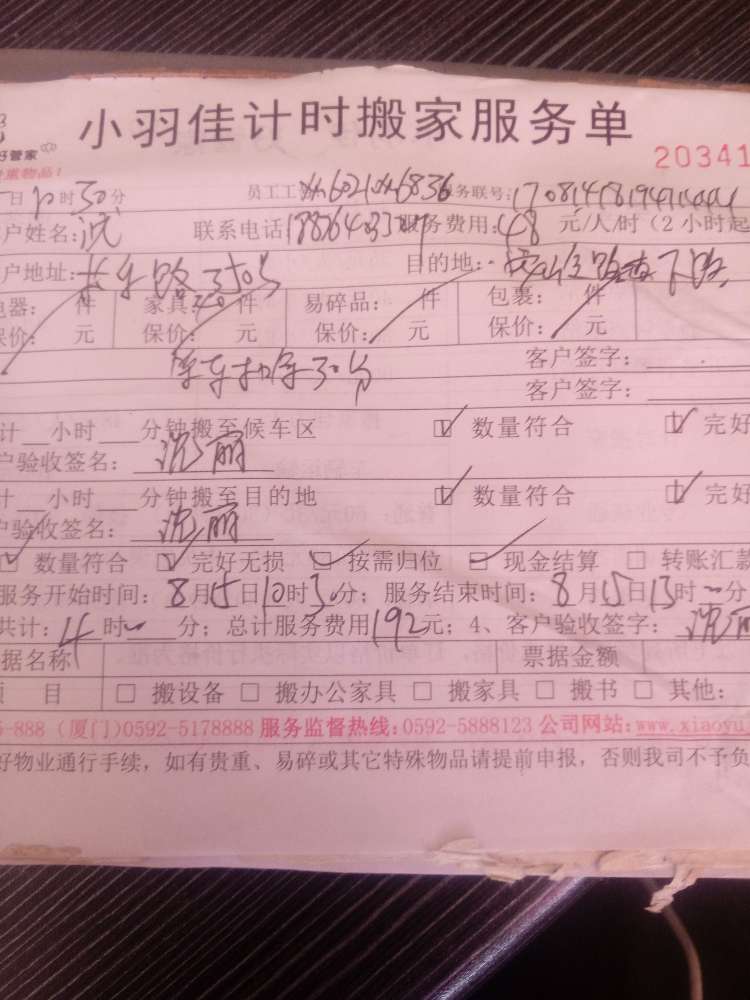 小羽佳计时搬家服务单
好管家
贵重物品!
20341
日10时30分 员工工 6021 6836 服务联号:
户姓名:沈 联系电话 服务费用:48 元/人/时(2小时起
户地址:长乐路 目的地: 路 下路
电器: 件 家具: 件 易碎品: 件 包裹: 件
保价: 元 保价: 元 保价: 元 保价: 元
30分 客户签字:
客户签字:
计__小时___分钟搬至候车区 ☑ 数量符合 ☑ 完好
户验收签名: 沈丽
计__小时___分钟搬至目的地 ☑ 数量符合 ☑ 完好
户验收签名: 沈丽
☑ 数量符合 ☑ 完好无损 ☑ 按需归位 ☑ 现金结算 ☐ 转账汇款
服务开始时间:8月15日10时30分;服务结束时间:8月15日13时 分
共计:4时 分;总计服务费用192元;4、客户验收签字:沈丽
据名称 票据金额
项 目 ☐ 搬设备 ☐ 搬办公家具 ☐ 搬家具 ☐ 搬书 ☐ 其他:
5-888 (厦门)0592-5178888 服务监督热线:0592-5888123 公司网站:www.xiaoyuj
好物业通行手续,如有贵重、易碎或其它特殊物品请提前申报,否则我司不予负